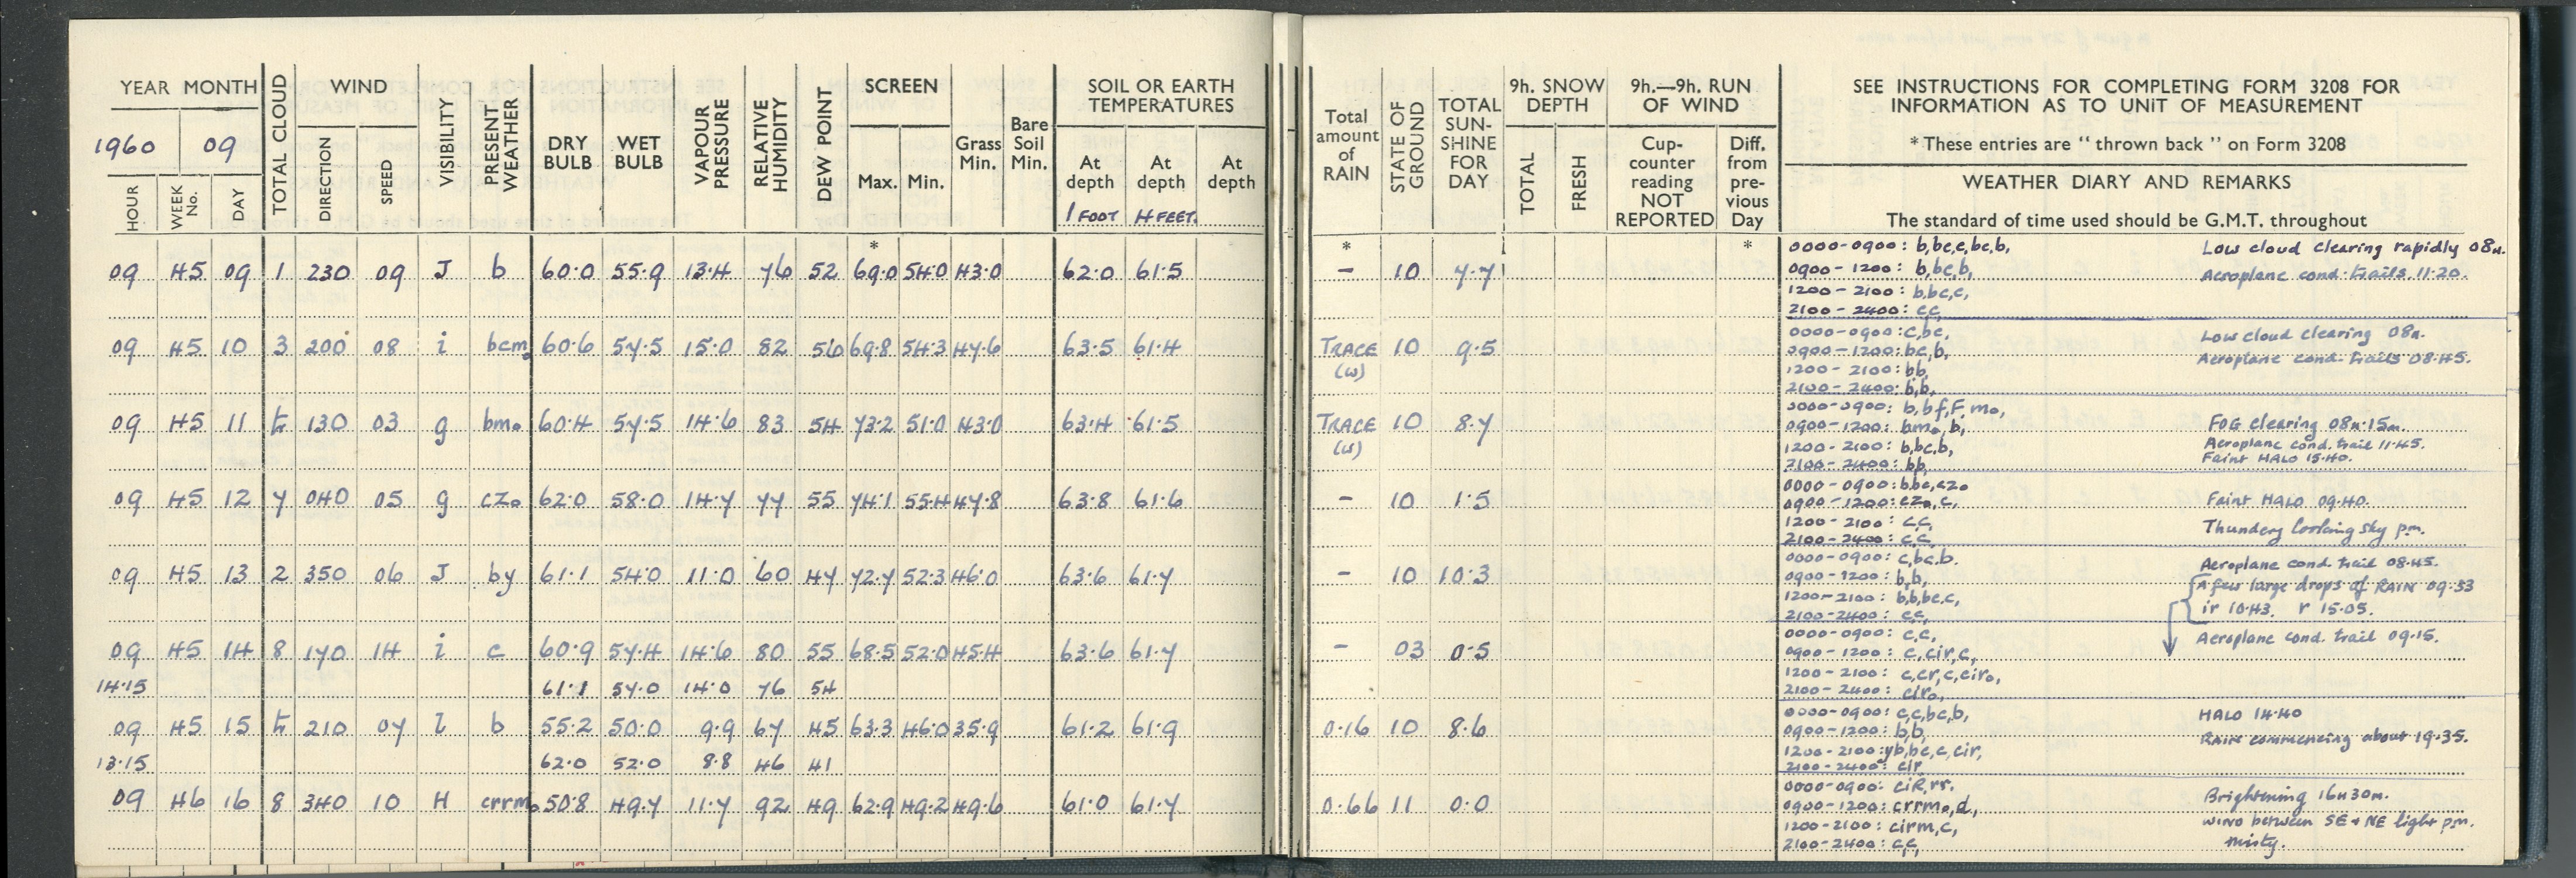 YEAR MONTH
1960 09
HOUR WEEK No. DAY
TOTAL CLOUD
WIND
DIRECTION SPEED
VISIBILITY
PRESENT WEATHER
DRY BULB
WET BULB
VAPOUR PRESSURE
RELATIVE HUMIDITY
DEW POINT
SCREEN
Max. Min.
Grass Min.
Bare Soil Min.
SOIL OR EARTH TEMPERATURES
At depth 1 FOOT
At depth 4 FEET.
At depth
09 45 09 1 230 09 J b 60·0 55·9 13·4 76 52 69·0 54·0 43·0 62·0 61·5
09 45 10 3 200 08 i bcm₀ 60·6 57·5 15·0 82 56 69·8 54·3 47·6 63·5 61·4
09 45 11 tr 130 03 g bm₀ 60·4 57·5 14·6 83 54 73·2 51·0 43·0 63·4 61·5
09 45 12 7 040 05 g cz₀ 62·0 58·0 14·7 77 55 74·1 55·4 47·8 63·8 61·6
09 45 13 2 350 06 J by 61·1 54·0 11·0 60 47 72·7 52·3 46·0 63·6 61·7
09 45 14 8 170 14 i c 60·9 57·4 14·6 80 55 68·5 52·0 45·4 63·6 61·7
14·15 61·1 57·0 14·0 76 54
09 45 15 tr 210 07 l b 55·2 50·0 9·9 67 45 63·3 46·0 35·9 61·2 61·9
13·15 62·0 52·0 8·8 46 41
09 46 16 8 340 10 H crrm₀ 50·8 49·7 11·7 92 49 62·9 49·2 49·6 61·0 61·7
Total amount of RAIN
STATE OF GROUND
TOTAL SUN-SHINE FOR DAY
9h. SNOW DEPTH
TOTAL FRESH
9h.—9h. RUN OF WIND
Cup-counter reading NOT REPORTED
Diff. from pre-vious Day
SEE INSTRUCTIONS FOR COMPLETING FORM 3208 FOR
INFORMATION AS TO UNIT OF MEASUREMENT
* These entries are "thrown back" on Form 3208
WEATHER DIARY AND REMARKS
The standard of time used should be G.M.T. throughout
* * *
– 10 7·7
0000-0900: b,bc,c,bc,b, Low cloud clearing rapidly 08h.
0900-1200: b,bc,b, Aeroplane cond. trails. 11·20.
1200-2100: b,bc,c,
2100-2400: cc,
TRACE (w) 10 9·5
0000-0900: c,bc, Low cloud clearing 08h.
0900-1200: bc,b, Aeroplane cond. trails 08·45.
1200-2100: bb,
2100-2400: b,b,
TRACE (w) 10 8·7
0000-0900: b,bf,F,m₀, FOG clearing 08h·15m.
0900-1200: bm₀,b, Aeroplane cond. trail 11·45.
1200-2100: b,bc,b, Faint HALO 15·40.
2100-2400: bb,
– 10 1·5
0000-0900: bbc,cz₀
0900-1200: cz₀,c, Faint HALO 09·40.
1200-2100: c,c, Thundery looking sky pm.
2100-2400: c,c,
– 10 10·3
0000-0900: c,bc,b. Aeroplane cond. trail 08·45.
0900-1200: b,b, A few large drops of RAIN 09·53
1200-2100: b,b,bc,c, ir 10·43. r 15·05.
2100-2400: c,c,
– 03 0·5
0000-0900: c,c, Aeroplane cond. trail 09·15.
0900-1200: c,cir,c,
1200-2100: c,cr,c,cir₀,
2100-2400: cir₀,
0·16 10 8·6
0000-0900: c,c,bc,b, HALO 14·40
0900-1200: b,b, RAIN commencing about 19·35.
1200-2100: yb,bc,c,cir,
2100-2400: cir,
0·66 11 0·0
0000-0900: ciR,rr. Brightening 16h30m.
0900-1200: crrm₀,d, WIND between SE + NE light pm.
1200-2100: cirm,c, misty.
2100-2400: c,c,